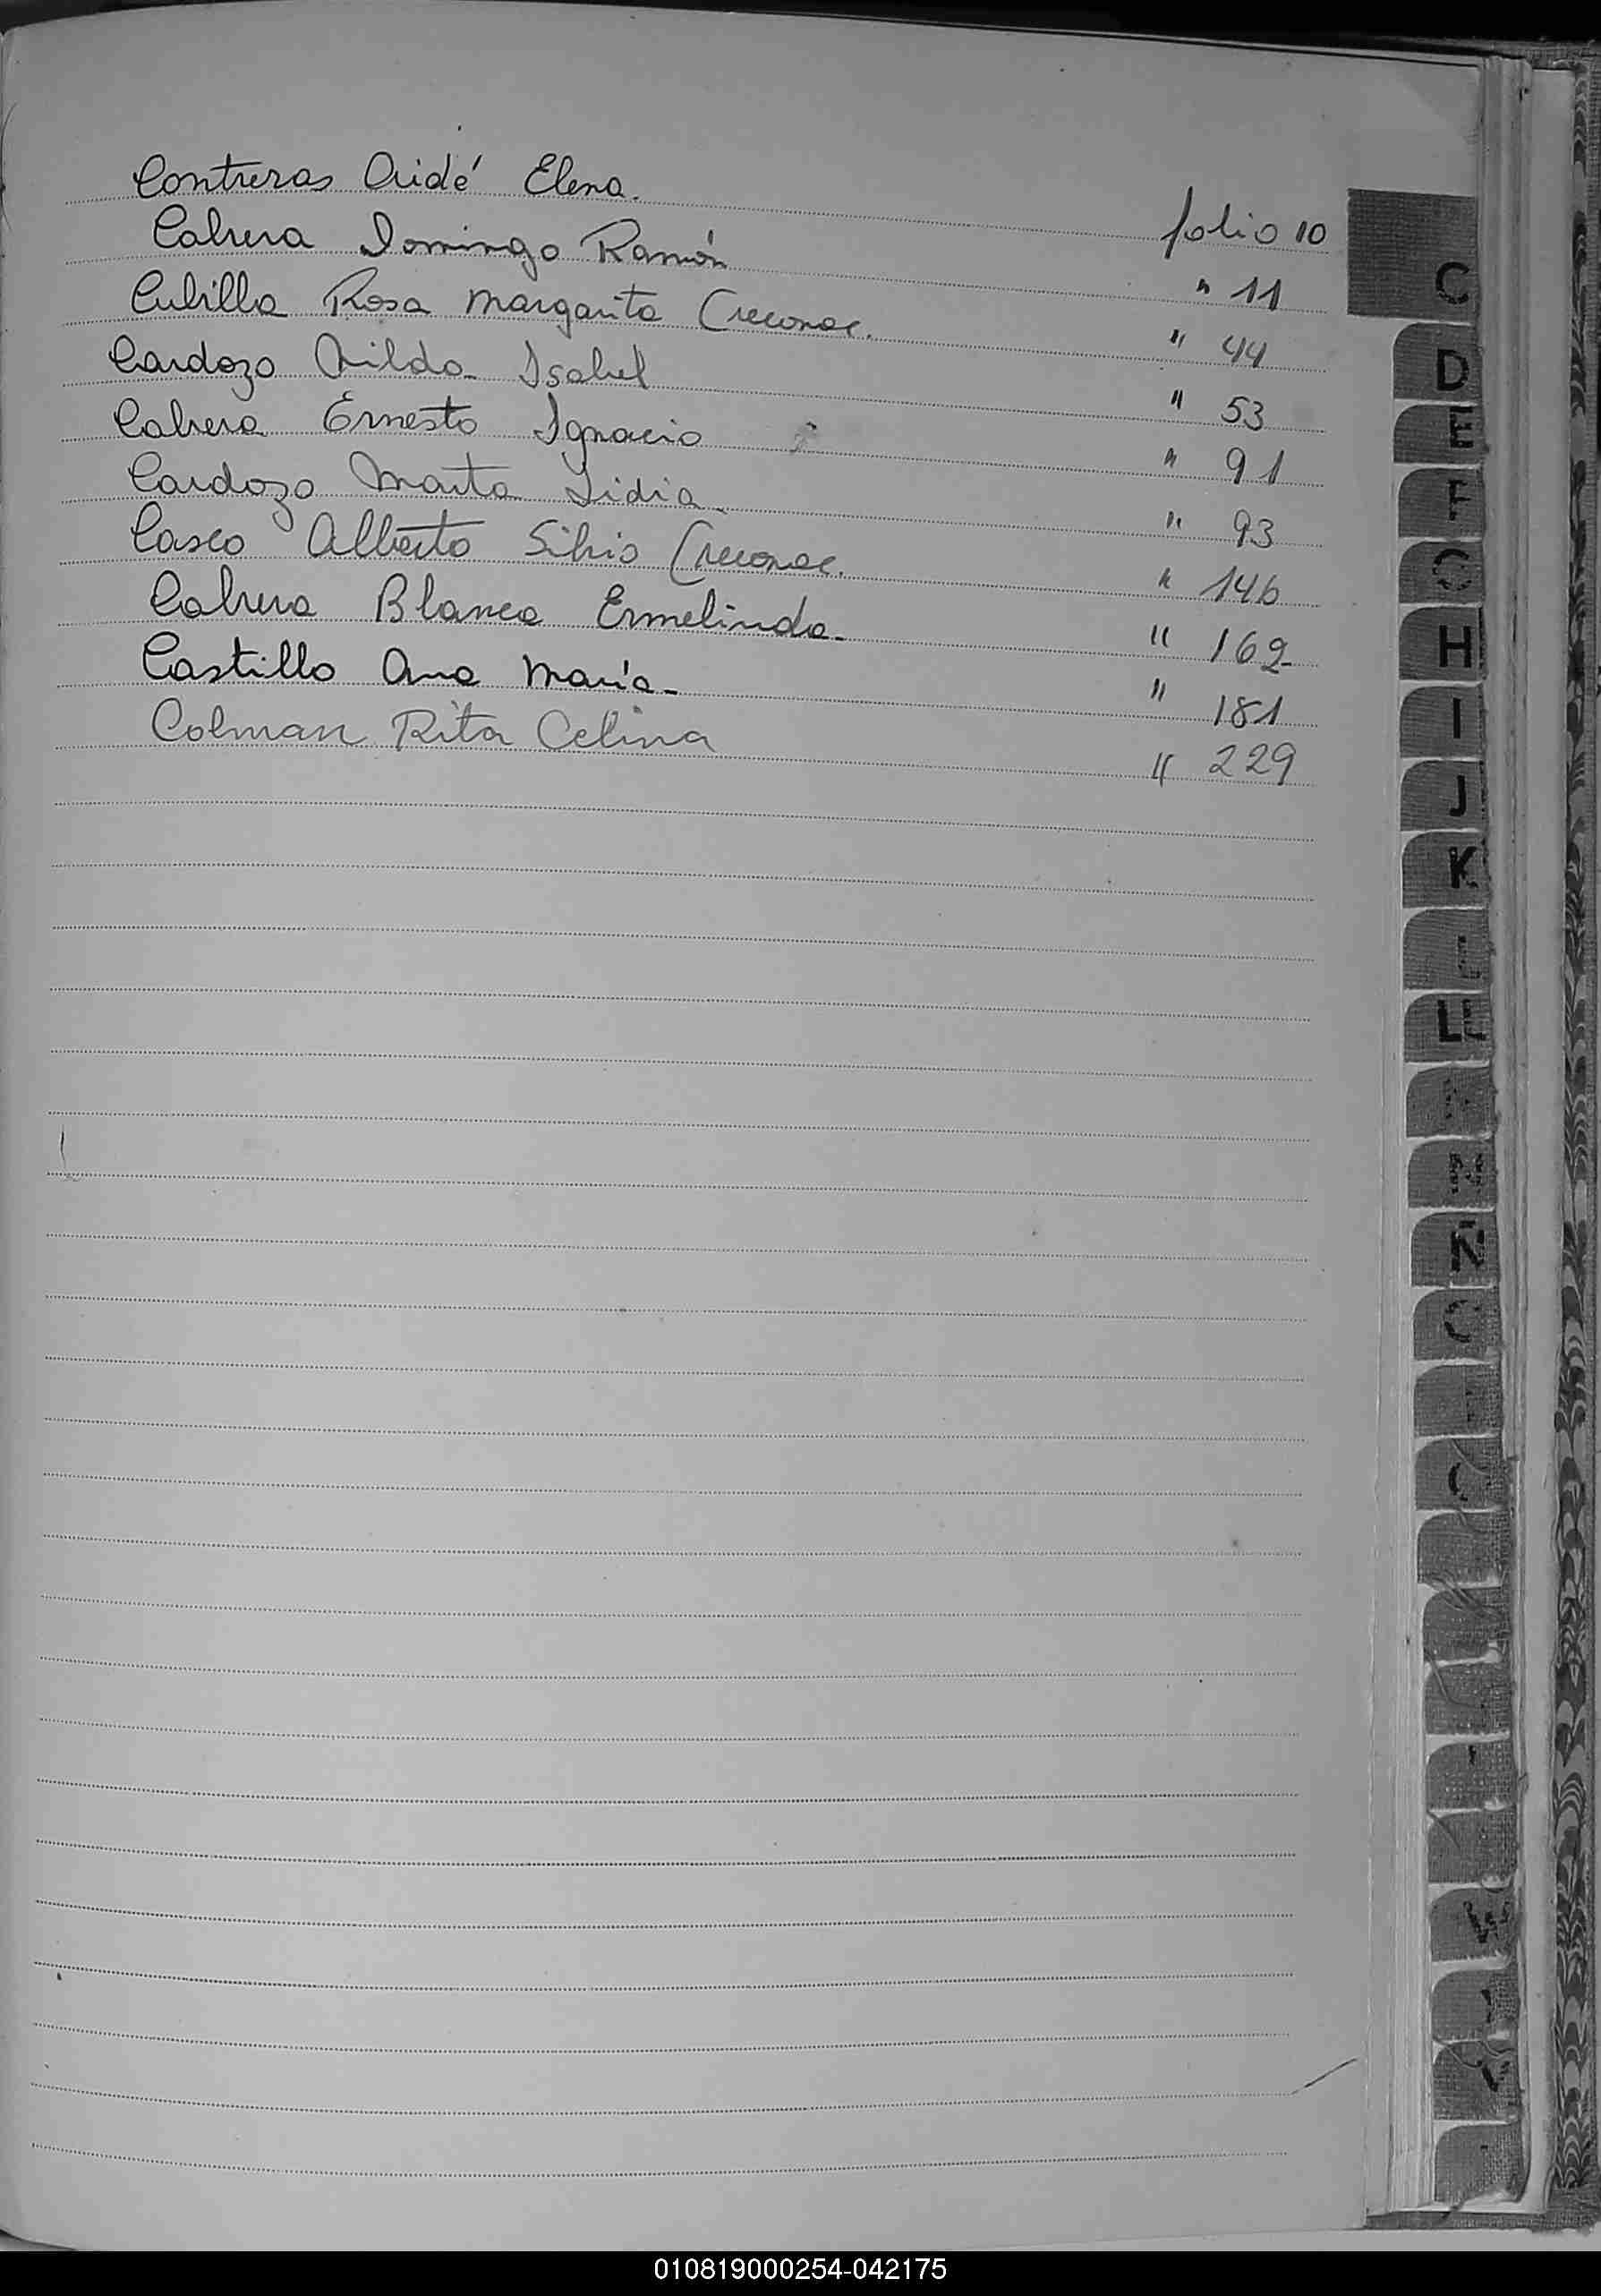 Contreras Aidé Elena. folio 10
Cabrera Domingo Ramón " 11
Cubilla Rosa Margarita (reconoc. " 44
Cardozo Nilda Isabel " 53
Cabrera Ernesto Ignacio " 91
Cardozo Marta Lidia " 93
Casco Alberto Silvio (reconoc. " 146
Cabrera Blanca Ermelinda. " 162
Castillo Ana María " 181
Colman Rita Celina " 229
C
D
E
F
H
I
J
K
LL
Ñ
010819000254-042175